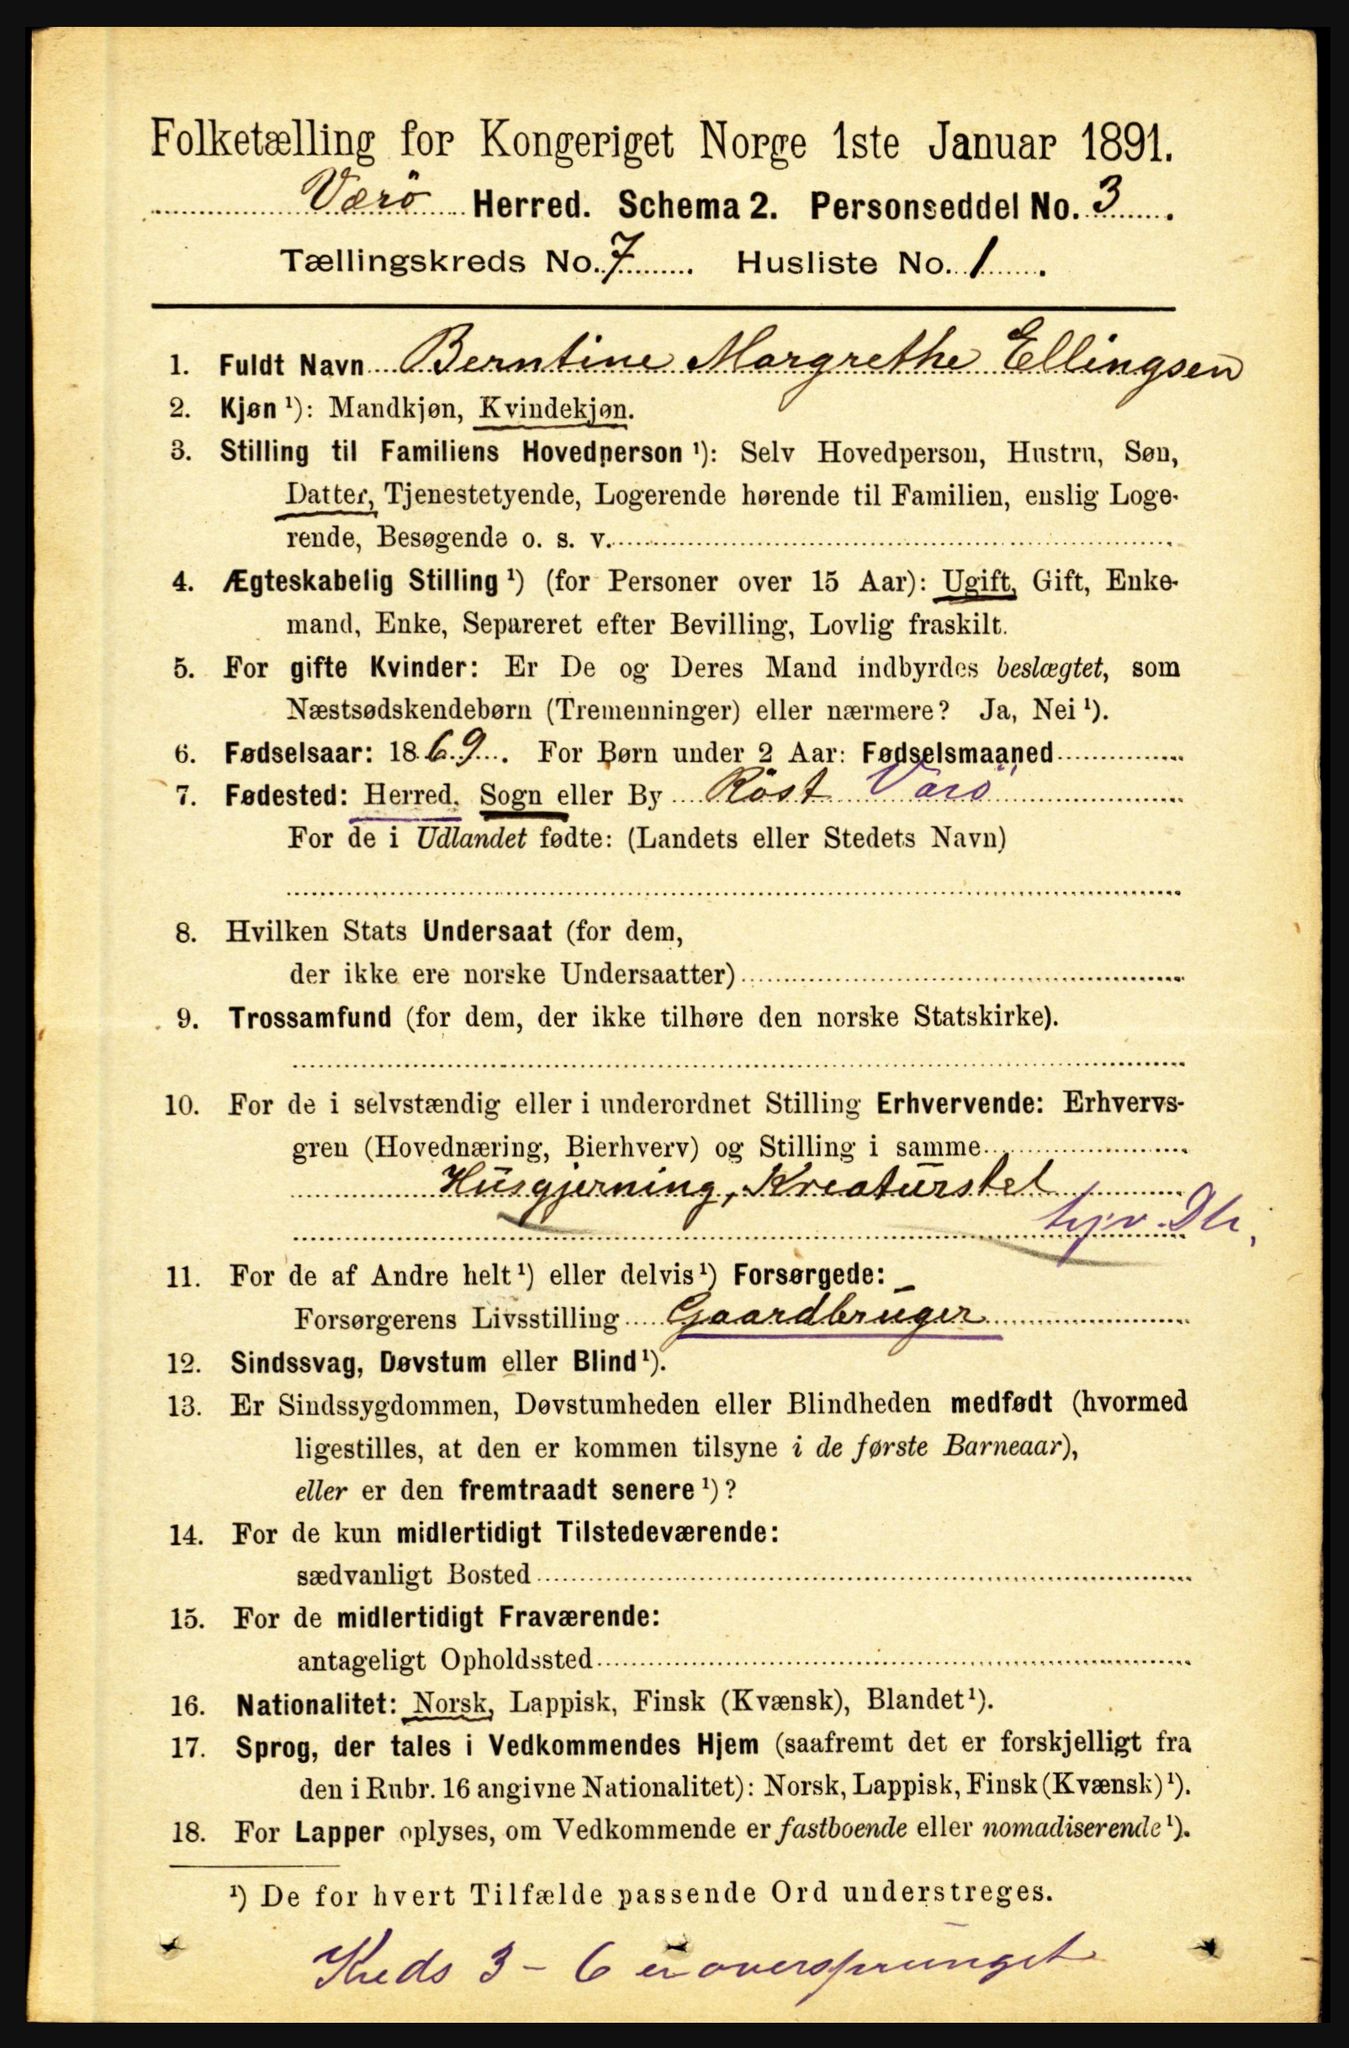 Folketælling for Kongeriget Norge 1ste Januar 1891.
Værö Herred. Schema 2. Personseddel No. 3.
Tællingskreds No. 7. Husliste No. 1.
1. Fuldt Navn Berntine Margrethe Ellingsen
2. Kjøn ¹): Mandkjøn, Kvindekjøn.
3. Stilling til Familiens Hovedperson ¹): Selv Hovedperson, Hustru, Søn,
Datter, Tjenestetyende, Logerende hørende til Familien, enslig Loge-
rende, Besøgende o. s. v.
4. Ægteskabelig Stilling ¹) (for Personer over 15 Aar): Ugift, Gift, Enke-
mand, Enke, Separeret efter Bevilling, Lovlig fraskilt.
5. For gifte Kvinder: Er De og Deres Mand indbyrdes beslægtet, som
Næstsødskendebørn (Tremenninger) eller nærmere? Ja, Nei ¹).
6. Fødselsaar: 1869. For Børn under 2 Aar: Fødselsmaaned
7. Fødested: Herred, Sogn eller By Röst Værö
For de i Udlandet fødte: (Landets eller Stedets Navn)
8. Hvilken Stats Undersaat (for dem,
der ikke ere norske Undersaatter)
9. Trossamfund (for dem, der ikke tilhøre den norske Statskirke).
10. For de i selvstændig eller i underordnet Stilling Erhvervende: Erhvervs-
gren (Hovednæring, Bierhverv) og Stilling i samme
Husgjerning, Kreaturstel
11. For de af Andre helt ¹) eller delvis ¹) Forsørgede:
Forsørgerens Livsstilling Gaardbruger
12. Sindssvag, Døvstum eller Blind ¹).
13. Er Sindssygdommen, Døvstumheden eller Blindheden medfødt (hvormed
ligestilles, at den er kommen tilsyne i de første Barneaar),
eller er den fremtraadt senere ¹)?
14. For de kun midlertidigt Tilstedeværende:
sædvanligt Bosted
15. For de midlertidigt Fraværende:
antageligt Opholdssted
16. Nationalitet: Norsk, Lappisk, Finsk (Kvænsk), Blandet ¹).
17. Sprog, der tales i Vedkommendes Hjem (saafremt det er forskjelligt fra
den i Rubr. 16 angivne Nationalitet): Norsk, Lappisk, Finsk (Kvænsk) ¹).
18. For Lapper oplyses, om Vedkommende er fastboende eller nomadiserende ¹).
¹) De for hvert Tilfælde passende Ord understreges.
Kreds 3 - 6 er oversprunget